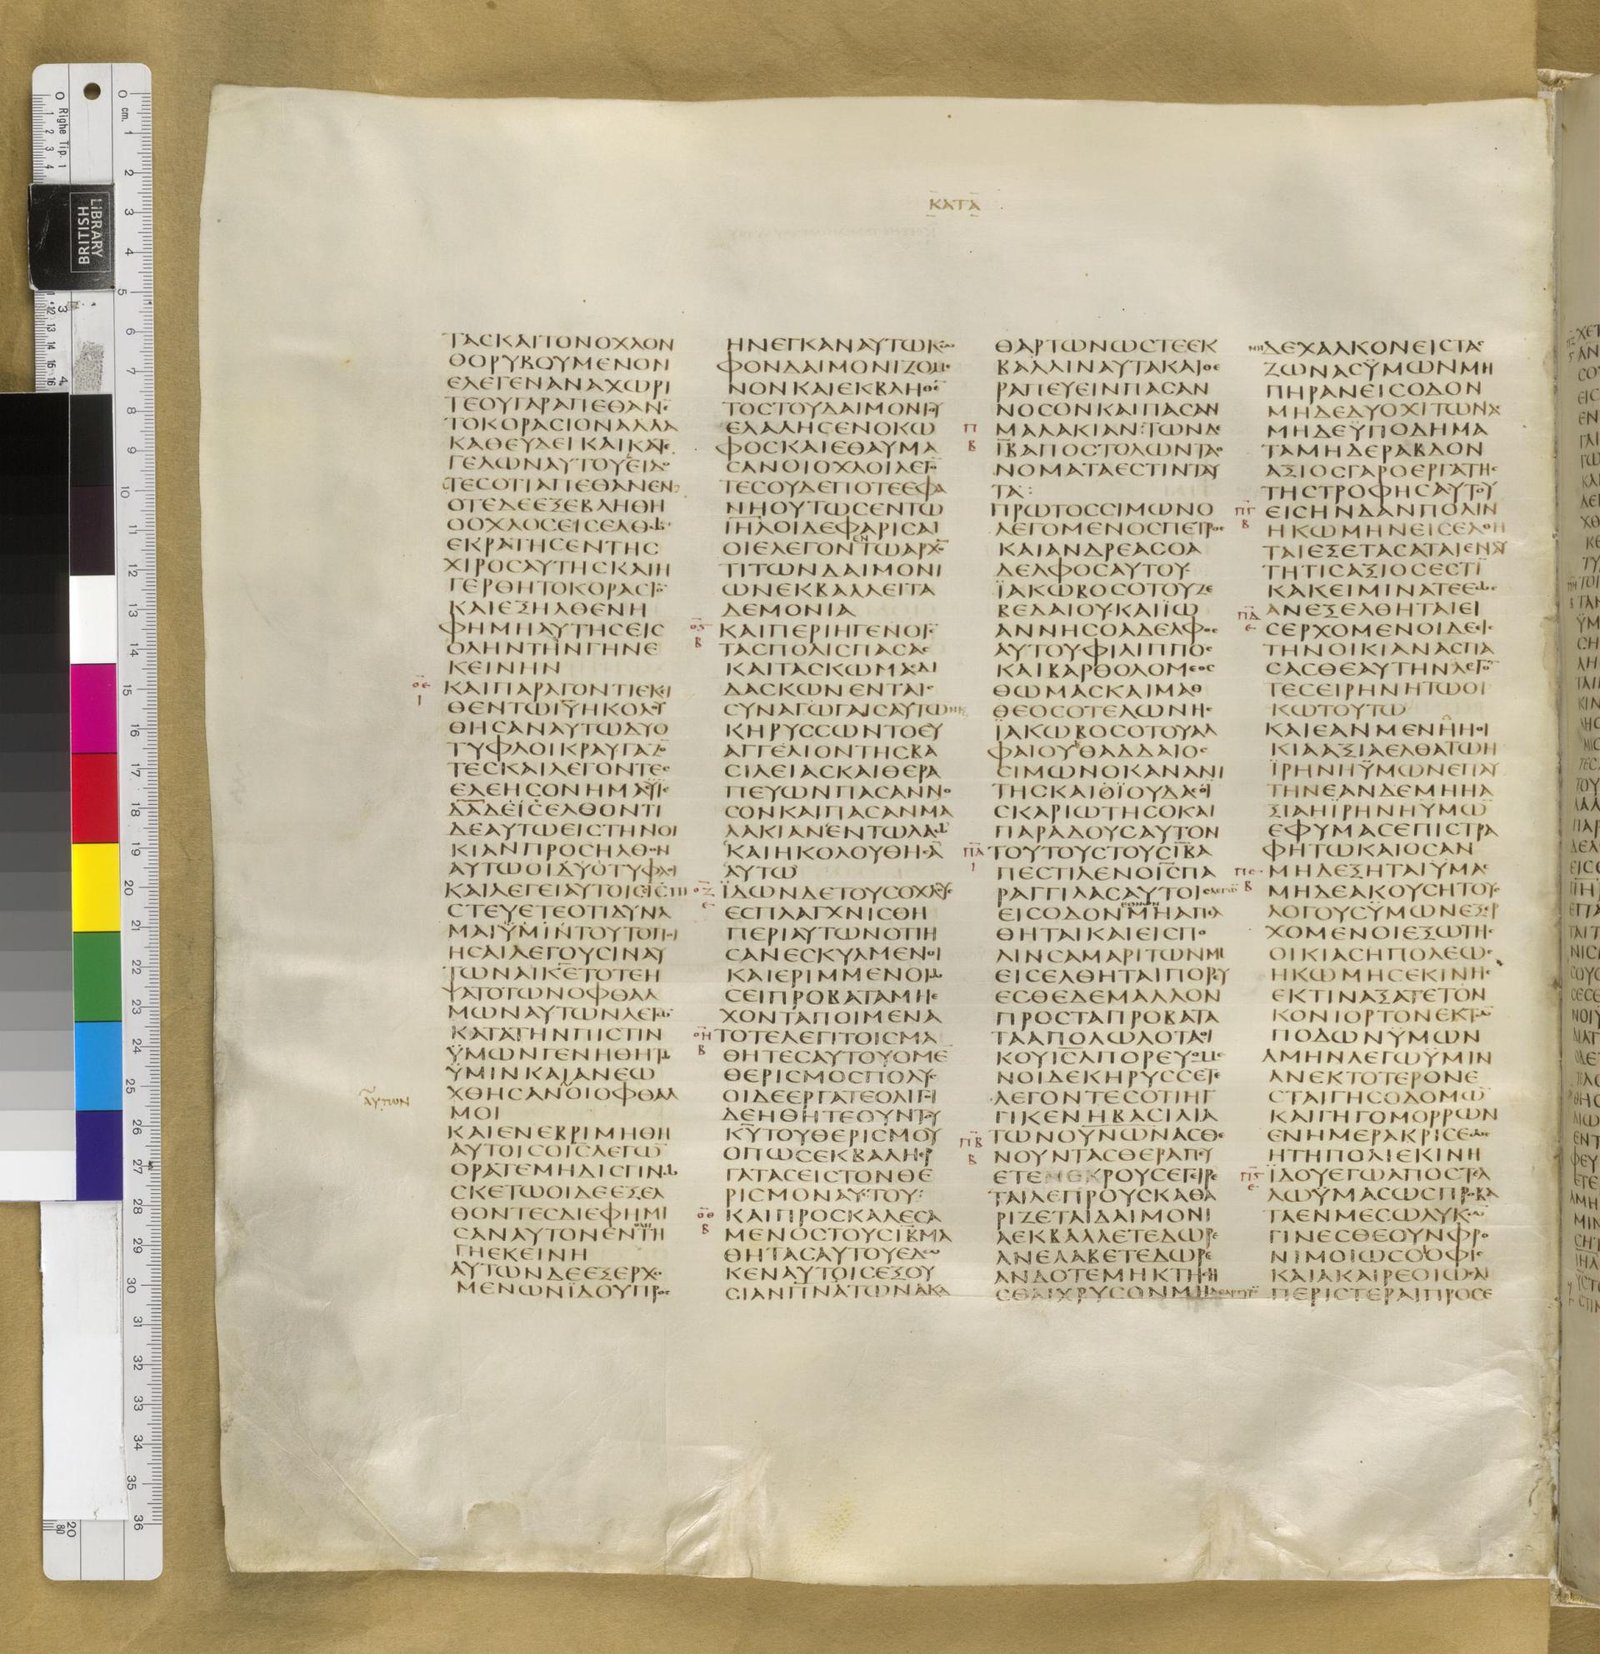 ΚΑΤΑ
ΤΑΣΚΑΙΤΟΝΟΧΛΟΝ
ΘΟΡΥΒΟΥΜΕΝΟΝ
ΕΛΕΓΕΝΑΝΑΧΩΡΙ
ΤΕΟΥΓΑΡΑΠΕΘΑΝΕ
ΤΟΚΟΡΑΣΙΟΝΑΛΛΑ
ΚΑΘΕΥΔΕΙΚΑΙΚΑΤΕ
ΓΕΛΩΝΑΥΤΟΥΕΙΔΟ
ΤΕΣΟΤΙΑΠΕΘΑΝΕΝ
ΟΤΕΔΕΕΞΕΒΛΗΘΗ
ΟΟΧΛΟΣΕΙΣΕΛΘΩΝ
ΕΚΡΑΤΗΣΕΝΤΗΣ
ΧΙΡΟΣΑΥΤΗΣΚΑΙΗ
ΓΕΡΘΗΤΟΚΟΡΑΣΙΟ
ΚΑΙΕΞΗΛΘΕΝΗ
ΦΗΜΗΑΥΤΗΣΕΙΣ
ΟΛΗΝΤΗΝΓΗΝΕ
ΚΕΙΝΗΝ
ΚΑΙΠΑΡΑΓΟΝΤΙΕΚΙ
ΘΕΝΤΩΙΥΗΚΟΛΟΥ
ΘΗΣΑΝΑΥΤΩΔΥΟ
ΤΥΦΛΟΙΚΡΑΥΓΑΖΟ
ΤΕΣΚΑΙΛΕΓΟΝΤΕΣ
ΕΛΕΗΣΟΝΗΜΑΣΥΙΕ
ΔΑΔΕΙΣΕΛΘΟΝΤΙ
ΔΕΑΥΤΩΕΙΣΤΗΝΟΙ
ΚΙΑΝΠΡΟΣΗΛΘΟΝ
ΑΥΤΩΟΙΔΥΟΤΥΦΛΟΙ
ΚΑΙΛΕΓΕΙΑΥΤΟΙΣΙΣΠΙ
ΣΤΕΥΕΤΕΟΤΙΔΥΝΑ
ΜΑΙΥΜΙΝΤΟΥΤΟΠΟΙ
ΗΣΑΙΛΕΓΟΥΣΙΝΑΥ
ΤΩΝΑΙΚΕΤΟΤΕΗ
ΨΑΤΟΤΩΝΟΦΘΑΛ
ΜΩΝΑΥΤΩΝΛΕΓΩΝ
ΚΑΤΑΤΗΝΠΙΣΤΙΝ
ΥΜΩΝΓΕΝΗΘΗΤΩ
ΥΜΙΝΚΑΙΑΝΕΩ
ΑΥΤΩΝ
ΧΘΗΣΑΝΟΙΟΦΘΑΛ
ΜΟΙ
ΚΑΙΕΝΕΒΡΙΜΗΘΗ
ΑΥΤΟΙΣΟΙΣΛΕΓΩ
ΟΡΑΤΕΜΗΔΙΣΓΙΝΩ
ΣΚΕΤΩΟΙΔΕΕΞΕΛ
ΘΟΝΤΕΣΔΙΕΦΗΜΙ
ΣΑΝΑΥΤΟΝΕΝΤΗ
ΓΗΕΚΕΙΝΗ
ΑΥΤΩΝΔΕΕΞΕΡΧΟ
ΜΕΝΩΝΙΔΟΥΠΡΟΣ
ΗΝΕΓΚΑΝΑΥΤΩΚΩ
ΦΟΝΔΑΙΜΟΝΙΖΟΜΕ
ΝΟΝΚΑΙΕΚΒΛΗΘΕ
ΤΟΣΤΟΥΔΑΙΜΟΝΙΟΥ
ΕΛΑΛΗΣΕΝΟΚΩ
ΦΟΣΚΑΙΕΘΑΥΜΑ
ΣΑΝΟΙΟΧΛΟΙΛΕΓΟ
ΤΕΣΟΥΔΕΠΟΤΕΕΦΑ
ΝΗΟΥΤΩΣΕΝΤΩ
ΙΗΛΟΙΔΕΦΑΡΙΣΑΙ
ΟΙΕΛΕΓΟΝΕΝΤΩΑΡΧΟ
ΤΙΤΩΝΔΑΙΜΟΝΙ
ΩΝΕΚΒΑΛΛΕΙΤΑ
ΔΕΜΟΝΙΑ
ΚΑΙΠΕΡΙΗΓΕΝΟΙΣ
ΤΑΣΠΟΛΙΣΠΑΣΑΣ
ΚΑΙΤΑΣΚΩΜΑΣΔΙ
ΔΑΣΚΩΝΕΝΤΑΙΣ
ΣΥΝΑΓΩΓΑΙΣΑΥΤΩΝ
ΚΗΡΥΣΣΩΝΤΟΕΥ
ΑΓΓΕΛΙΟΝΤΗΣΒΑ
ΣΙΛΕΙΑΣΚΑΙΘΕΡΑ
ΠΕΥΩΝΠΑΣΑΝΝΟ
ΣΟΝΚΑΙΠΑΣΑΝΜΑ
ΛΑΚΙΑΝΕΝΤΩΛΑΩ
ΚΑΙΗΚΟΛΟΥΘΗΣΑ
ΑΥΤΩ
ΙΔΩΝΔΕΤΟΥΣΟΧΛΟΥΣ
ΕΣΠΛΑΓΧΝΙΣΘΗ
ΠΕΡΙΑΥΤΩΝΟΤΙΗ
ΣΑΝΕΣΚΥΛΜΕΝΟΙ
ΚΑΙΕΡΙΜΜΕΝΟΙΩ
ΣΕΙΠΡΟΒΑΤΑΜΗΕ
ΧΟΝΤΑΠΟΙΜΕΝΑ
ΤΟΤΕΛΕΓΙΤΟΙΣΜΑ
ΘΗΤΕΣΑΥΤΟΥΟΜΕ
ΘΕΡΙΣΜΟΣΠΟΛΥΣ
ΟΙΔΕΕΡΓΑΤΕΟΛΙΓΟΙ
ΔΕΗΘΗΤΕΟΥΝΤΟΥ
ΚΥΤΟΥΘΕΡΙΣΜΟΥ
ΟΠΩΣΕΚΒΑΛΗΕΡ
ΓΑΤΑΣΕΙΣΤΟΝΘΕ
ΡΙΣΜΟΝΑΥΤΟΥ
ΚΑΙΠΡΟΣΚΑΛΕΣΑ
ΜΕΝΟΣΤΟΥΣΙΒΜΑ
ΘΗΤΑΣΑΥΤΟΥΕΔΩ
ΚΕΝΑΥΤΟΙΣΕΞΟΥ
ΣΙΑΝΠΝΑΤΩΝΑΚΑ
ΘΑΡΤΩΝΩΣΤΕΕΚ
ΒΑΛΛΙΝΑΥΤΑΚΑΙΘΕ
ΡΑΠΕΥΕΙΝΠΑΣΑΝ
ΝΟΣΟΝΚΑΙΠΑΣΑΝ
ΜΑΛΑΚΙΑΝΤΩΝΔΕ
ΙΒΑΠΟΣΤΟΛΩΝΤΑΟ
ΝΟΜΑΤΑΕΣΤΙΝΤΑΥ
ΤΑ
ΠΡΩΤΟΣΣΙΜΩΝΟ
ΛΕΓΟΜΕΝΟΣΠΕΤΡΟΣ
ΚΑΙΑΝΔΡΕΑΣΟΑ
ΔΕΛΦΟΣΑΥΤΟΥ
ΙΑΚΩΒΟΣΟΤΟΥΖΕ
ΒΕΔΑΙΟΥΚΑΙΙΩ
ΑΝΝΗΣΟΑΔΕΛΦΟΣ
ΑΥΤΟΥΦΙΛΙΠΠΟΣ
ΚΑΙΒΑΡΘΟΛΟΜΕΟΣ
ΘΩΜΑΣΚΑΙΜΑΘ
ΘΕΟΣΟΤΕΛΩΝΗΣ
ΙΑΚΩΒΟΣΟΤΟΥΑΛ
ΦΑΙΟΥΘΑΔΔΑΙΟΣ
ΣΙΜΩΝΟΚΑΝΑΝΙ
ΤΗΣΚΑΙΟΙΟΥΔΑΣΟΙ
ΣΚΑΡΙΩΤΗΣΟΚΑΙ
ΠΑΡΑΔΟΥΣΑΥΤΟΝ
ΤΟΥΤΟΥΣΤΟΥΣΙΒΑ
ΠΕΣΤΙΛΕΝΟΙΣΠΑ
ΡΑΓΓΙΛΑΣΑΥΤΟΙΣΛΕΓΩ
ΕΙΣΟΔΟΝΕΘΝΩΝΜΗΑΠΕΛ
ΘΗΤΑΙΚΑΙΕΙΣΠΟ
ΛΙΝΣΑΜΑΡΙΤΩΝΜΗ
ΕΙΣΕΛΘΗΤΑΙΠΟΡΕΥ
ΕΣΘΕΔΕΜΑΛΛΟΝ
ΠΡΟΣΤΑΠΡΟΒΑΤΑ
ΤΑΑΠΟΛΩΛΟΤΑΟΙ
ΚΟΥΙΣΛΠΟΡΕΥΟΜΕ
ΝΟΙΔΕΚΗΡΥΣΣΕΤΕ
ΛΕΓΟΝΤΕΣΟΤΙΗΓ
ΓΙΚΕΝΗΒΑΣΙΛΙΑ
ΤΩΝΟΥΝΩΝΑΣΘΕ
ΝΟΥΝΤΑΣΘΕΡΑΠΕΥ
ΕΤΕΝΕΚΡΟΥΣΕΓΕΙΡΕ
ΤΑΙΛΕΠΡΟΥΣΚΑΘΑ
ΡΙΖΕΤΑΙΔΑΙΜΟΝΙ
ΑΕΚΒΑΛΛΕΤΕΔΩΡΕ
ΑΝΕΛΑΒΕΤΕΔΩΡΕ
ΑΝΔΟΤΕΜΗΚΤΗΣΗ
ΣΘΑΙΧΡΥΣΟΝΜΗΔΕΑΡΓΥΡΟ
ΜΗΔΕΧΑΛΚΟΝΕΙΣΤΑΣ
ΖΩΝΑΣΥΜΩΝΜΗ
ΠΗΡΑΝΕΙΣΟΔΟΝ
ΜΗΔΕΔΥΟΧΙΤΩΝΑΣ
ΜΗΔΕΥΠΟΔΗΜΑ
ΤΑΜΗΔΕΡΑΒΔΟΝ
ΑΞΙΟΣΓΑΡΟΕΡΓΑΤΗΣ
ΤΗΣΤΡΟΦΗΣΑΥΤΟΥ
ΕΙΣΗΝΔΑΝΠΟΛΙΝ
ΗΚΩΜΗΝΕΙΣΕΛΘΗ
ΤΑΙΕΞΕΤΑΣΑΤΑΙΕΝΑΥ
ΤΗΤΙΣΑΞΙΟΣΕΣΤΙ
ΚΑΚΕΙΜΙΝΑΤΕΕΩΣ
ΑΝΕΞΕΛΘΗΤΑΙΕΙ
ΣΕΡΧΟΜΕΝΟΙΔΕΕΙΣ
ΤΗΝΟΙΚΙΑΝΑΣΠΑ
ΣΑΣΘΕΑΥΤΗΝΛΕΓΟ
ΤΕΣΕΙΡΗΝΗΤΩΟΙ
ΚΩΤΟΥΤΩ
ΚΑΙΕΑΝΜΕΝΗΗΟΙ
ΚΙΑΑΞΙΑΕΛΘΑΤΩΗ
ΙΡΗΝΗΥΜΩΝΕΠΑΥ
ΤΗΝΕΑΝΔΕΜΗΗΑ
ΞΙΑΗΙΡΗΝΗΥΜΩ
ΕΦΥΜΑΣΕΠΙΣΤΡΑ
ΦΗΤΩΚΑΙΟΣΑΝ
ΜΗΔΕΞΗΤΑΙΥΜΑΣ
ΜΗΔΕΑΚΟΥΣΗΤΟΥΣ
ΛΟΓΟΥΣΥΜΩΝΕΞΕΡ
ΧΟΜΕΝΟΙΕΞΩΤΗΣ
ΟΙΚΙΑΣΗΠΟΛΕΩΣ
ΗΚΩΜΗΣΕΚΙΝΗΣ
ΕΚΤΙΝΑΞΑΤΕΤΟΝ
ΚΟΝΙΟΡΤΟΝΕΚΤΩ
ΠΟΔΩΝΥΜΩΝ
ΑΜΗΝΛΕΓΩΥΜΙΝ
ΑΝΕΚΤΟΤΕΡΟΝΕ
ΣΤΑΙΓΗΣΟΔΟΜΩ
ΚΑΙΓΗΓΟΜΟΡΡΩΝ
ΕΝΗΜΕΡΑΚΡΙΣΕΩΣ
ΗΤΗΠΟΛΙΕΚΙΝΗ
ΙΔΟΥΕΓΩΑΠΟΣΤΕΛ
ΛΩΥΜΑΣΩΣΠΡΟΒΑ
ΤΑΕΝΜΕΣΩΛΥΚΩ
ΓΙΝΕΣΘΕΟΥΝΦΡΟ
ΝΙΜΟΙΩΣΟΟΦΙΣ
ΚΑΙΑΚΑΙΡΕΟΙΩΣΑΙ
ΠΕΡΙΣΤΕΡΑΙΠΡΟΣΕ
BRITISH
LIBRARY